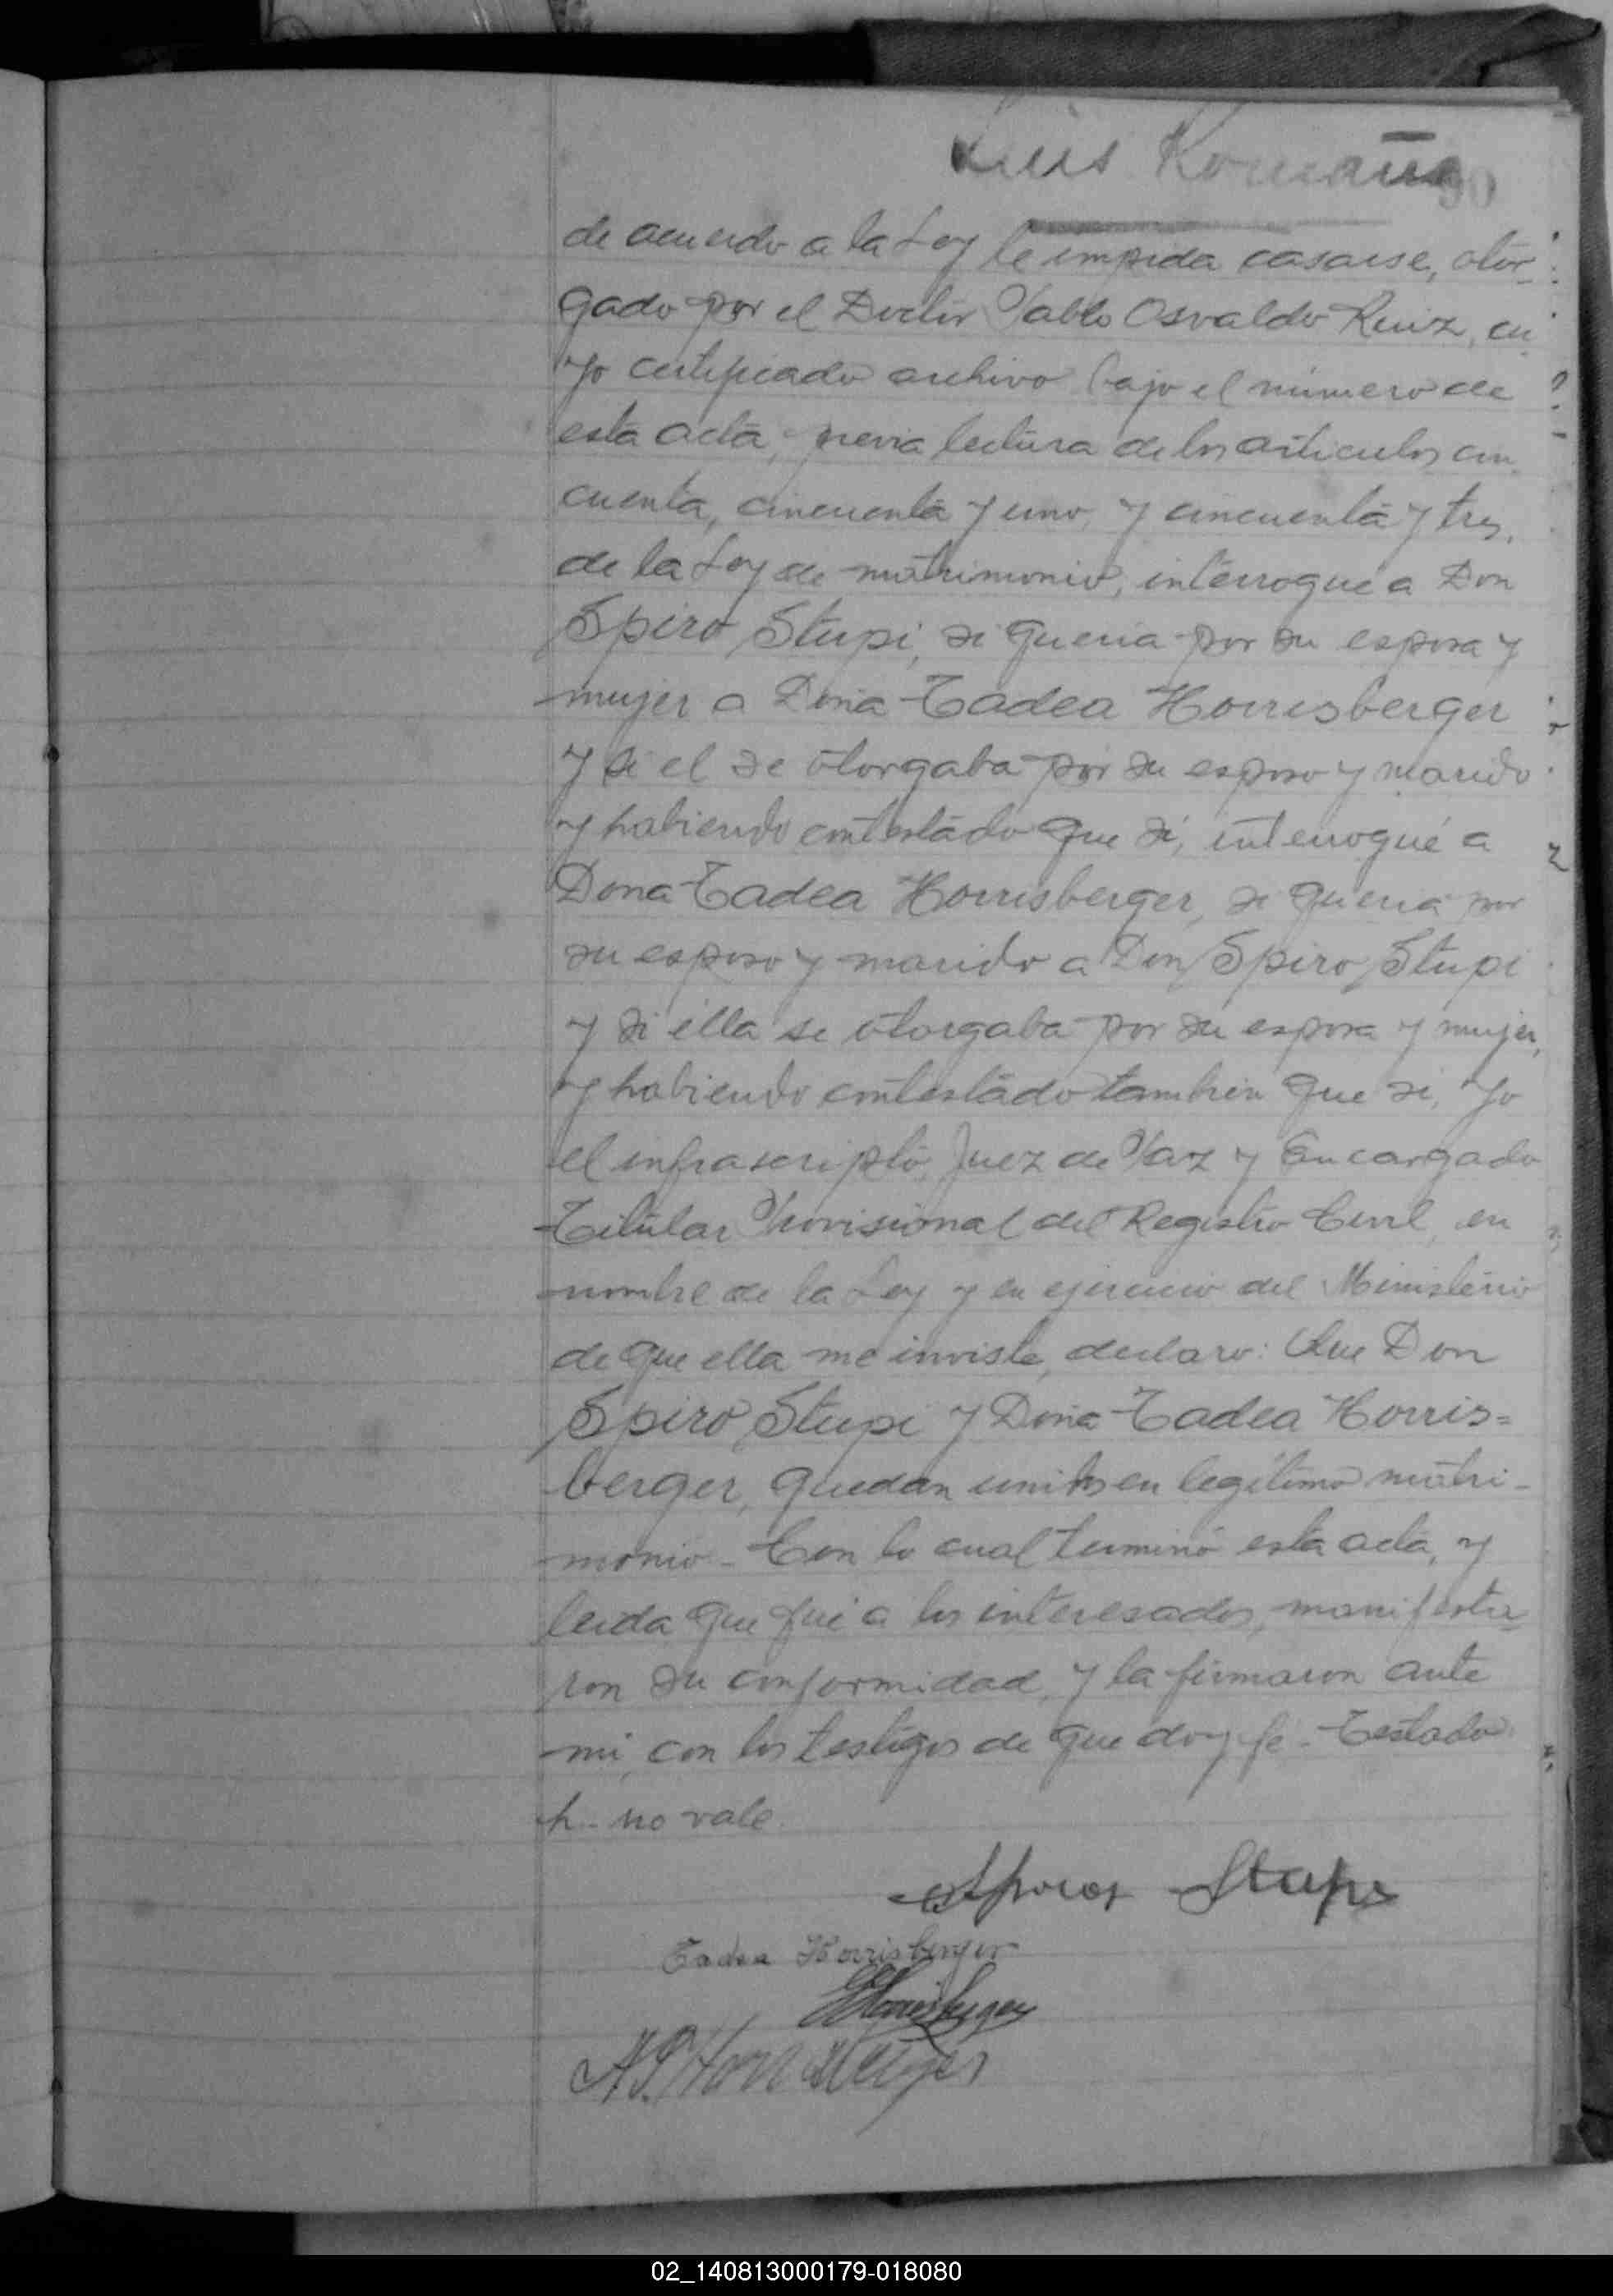 Luis Romana
90
de acuerdo a la Ley le impida casarse, otor-
gado por el Doctor Pablo Osvaldo Ruiz, cu-
yo certificado archivo bajo el número de
esta acta, previa lectura de los artículos cin-
cuenta, cincuenta y uno, y cincuenta y tres,
de la Ley de matrimonio, interrogué a Don
Spiro Stupi, si queria por su esposa y
mujer a Doña Tadea Horrisberger
y si el se otorgaba por su esposo y marido
y habiendo contestado que si, interrogué a
Dona Tadea Horrisberger, si queria por
su esposo y marido a Don Spiro Stupi
y si ella se otorgaba por su esposa y mujer,
y habiendo contestado tambien que si, Yo
el infrascripto, Juez de Paz y Encargado
Titular Provisional del Registro Civil, en
nombre de la Ley y en ejercicio del Ministerio
de que ella me inviste, declaro: Que Don
Spiro Stupi y Doña Tadea Horris=
berger, quedan unidos en legítimo matri-
monio - Con lo cual terminó esta acta, y
leida que fué a los interesados, manifesta-
ron su conformidad, y la firmaron ante
mi, con los testigos de que doy fe - Testado
h - no vale.
Stupi
Tadea Horrisberger
Horrisberger
02_140813000179-018080